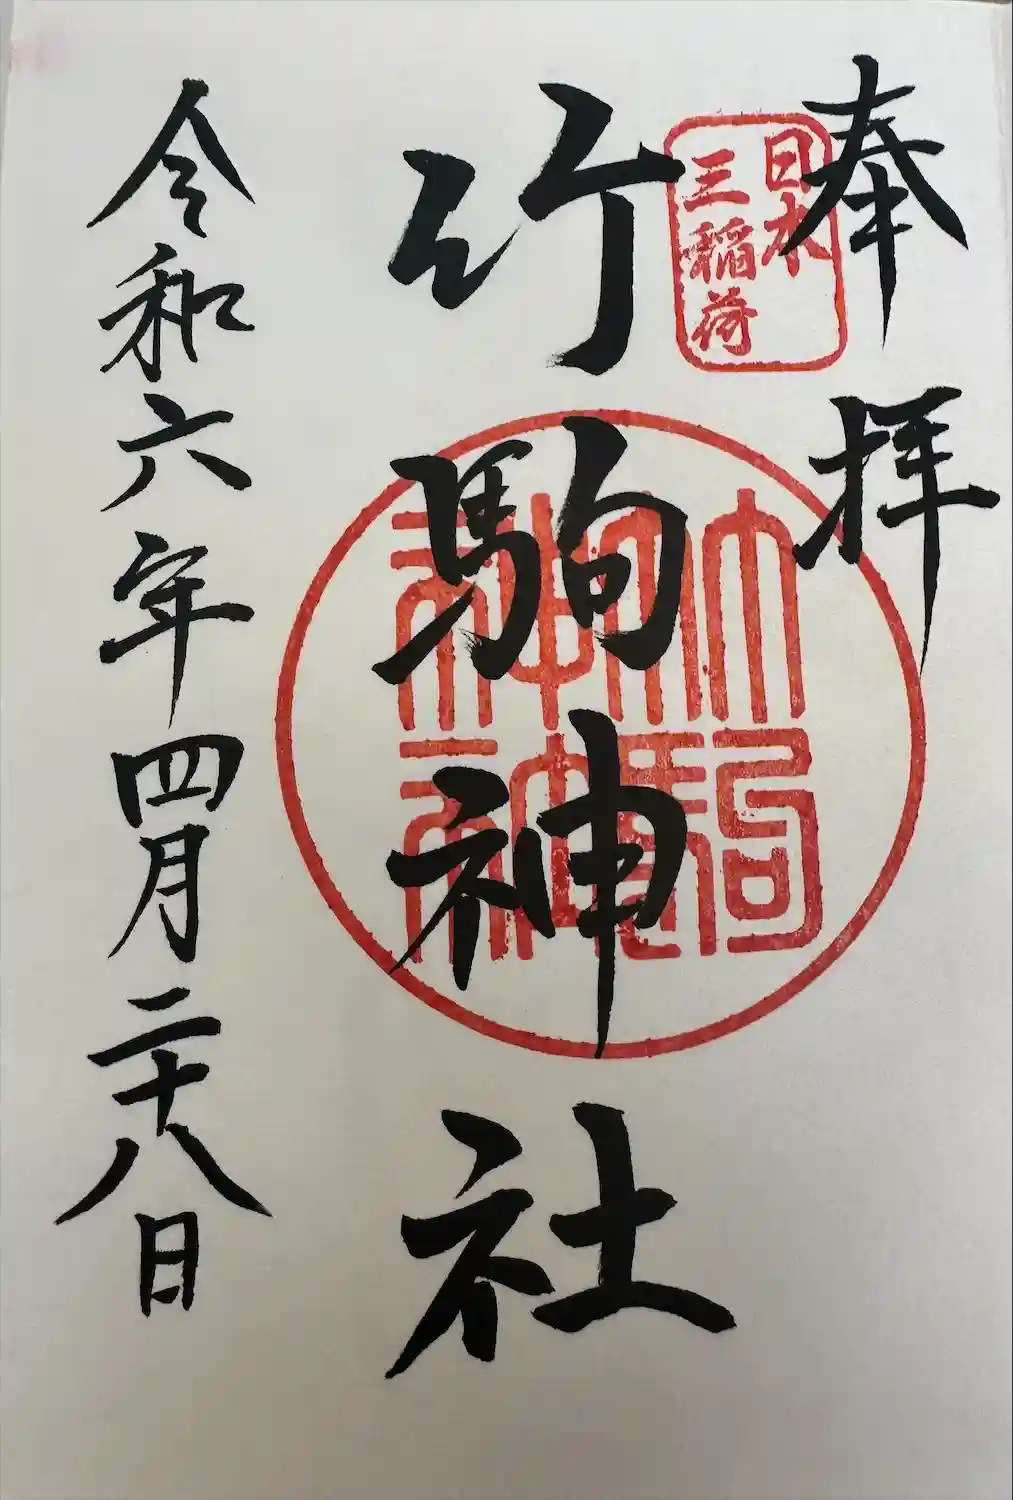 奉拝
日本
三稲荷
竹駒神社
竹駒
神社
令和六年四月二十八日